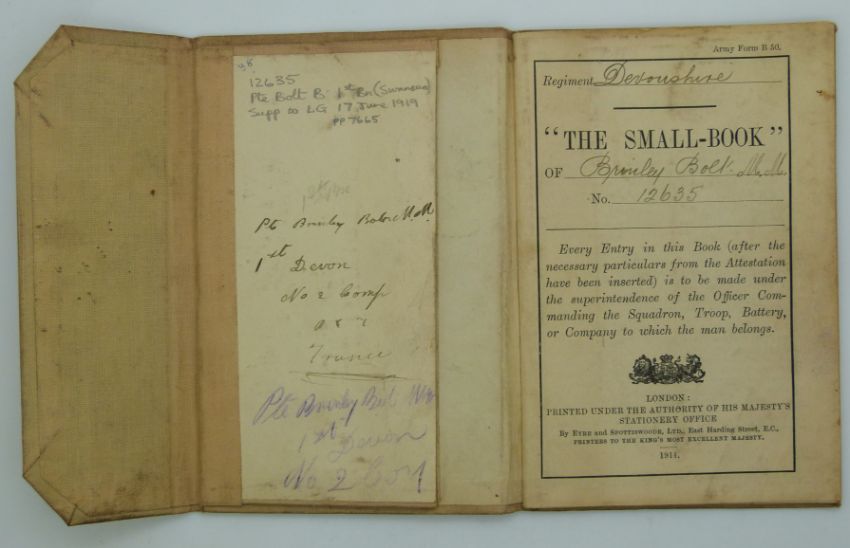 38
12635
Pte Bolt B. 1st Bn (Swansea)
Supp to LG 17 June 1919
PP 7665
Pte Brinley Bolt M.M
1st Devon
No 2 Comp
France
Pte Brinley Bolt MM
1st Devon
No 2 Com
Army Form B 50.
Regiment Devonshire
"THE SMALL-BOOK"
OF Brinley Bolt. M.M.
No. 12635
Every Entry in this Book (after the
necessary particulars from the Attestation
have been inserted) is to be made under
the superintendence of the Officer Com-
manding the Squadron, Troop, Battery,
or Company to which the man belongs.
LONDON:
PRINTED UNDER THE AUTHORITY OF HIS MAJESTY'S
STATIONERY OFFICE
By EYRE and SPOTTISWOODE, LTD., East Harding Street, E.C.,
PRINTERS TO THE KING'S MOST EXCELLENT MAJESTY.
1914.